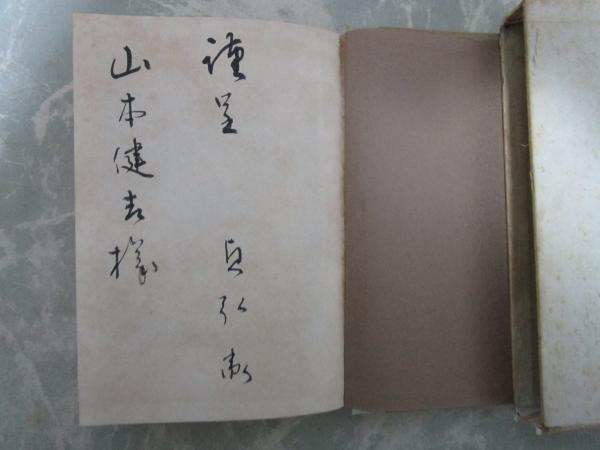 謹呈 貞弘衛
山本健吉様